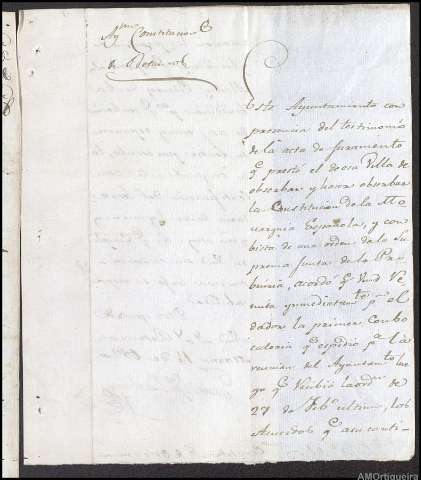 Aym.to Constitucion.l
de Betanzos
Este Ayuntamiento con
presencia del testimonio
de la acta de Juramento
q.e prestó el de esa Villa de
observar y hacer observar
la Constitucion de la Mo
narquia Española, y con
bista de una orden de la Su
prema Junta de la Pro
bincia, acordó q.e Vmd Re
mita ynmediatam.te p.r el
dador la primer combo
catoria q.e espidió p.a la
reunion del Ayuntam.to lue
go q.e Recibió la ord.n de
27 de Feb.o ultimo, los
Acuerdos q.e a su conti-
AMOrtigueira